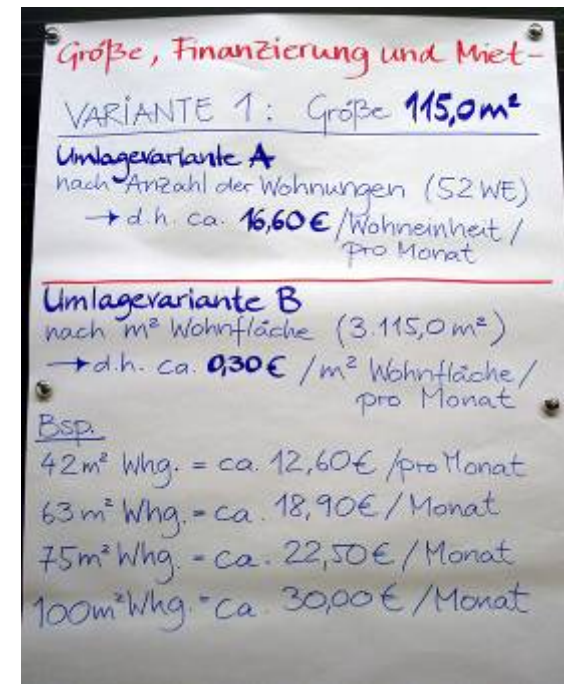 Größe, Finanzierung und Miet-
VARIANTE 1: Größe 115,0 m²
Umlagevariante A
nach Anzahl der Wohnungen (52 WE)
→ d.h. ca. 16,60 € /Wohneinheit /
pro Monat
Umlagevariante B
nach m² Wohnfläche (3.115,0 m²)
→ d.h. ca. 0,30 € / m² Wohnfläche /
pro Monat
Bsp.
42 m² Whg. = ca. 12,60 € /pro Monat
63 m² Whg. = ca. 18,90 € / Monat
75 m² Whg. = ca. 22,50 € / Monat
100 m² Whg. = ca. 30,00 € / Monat